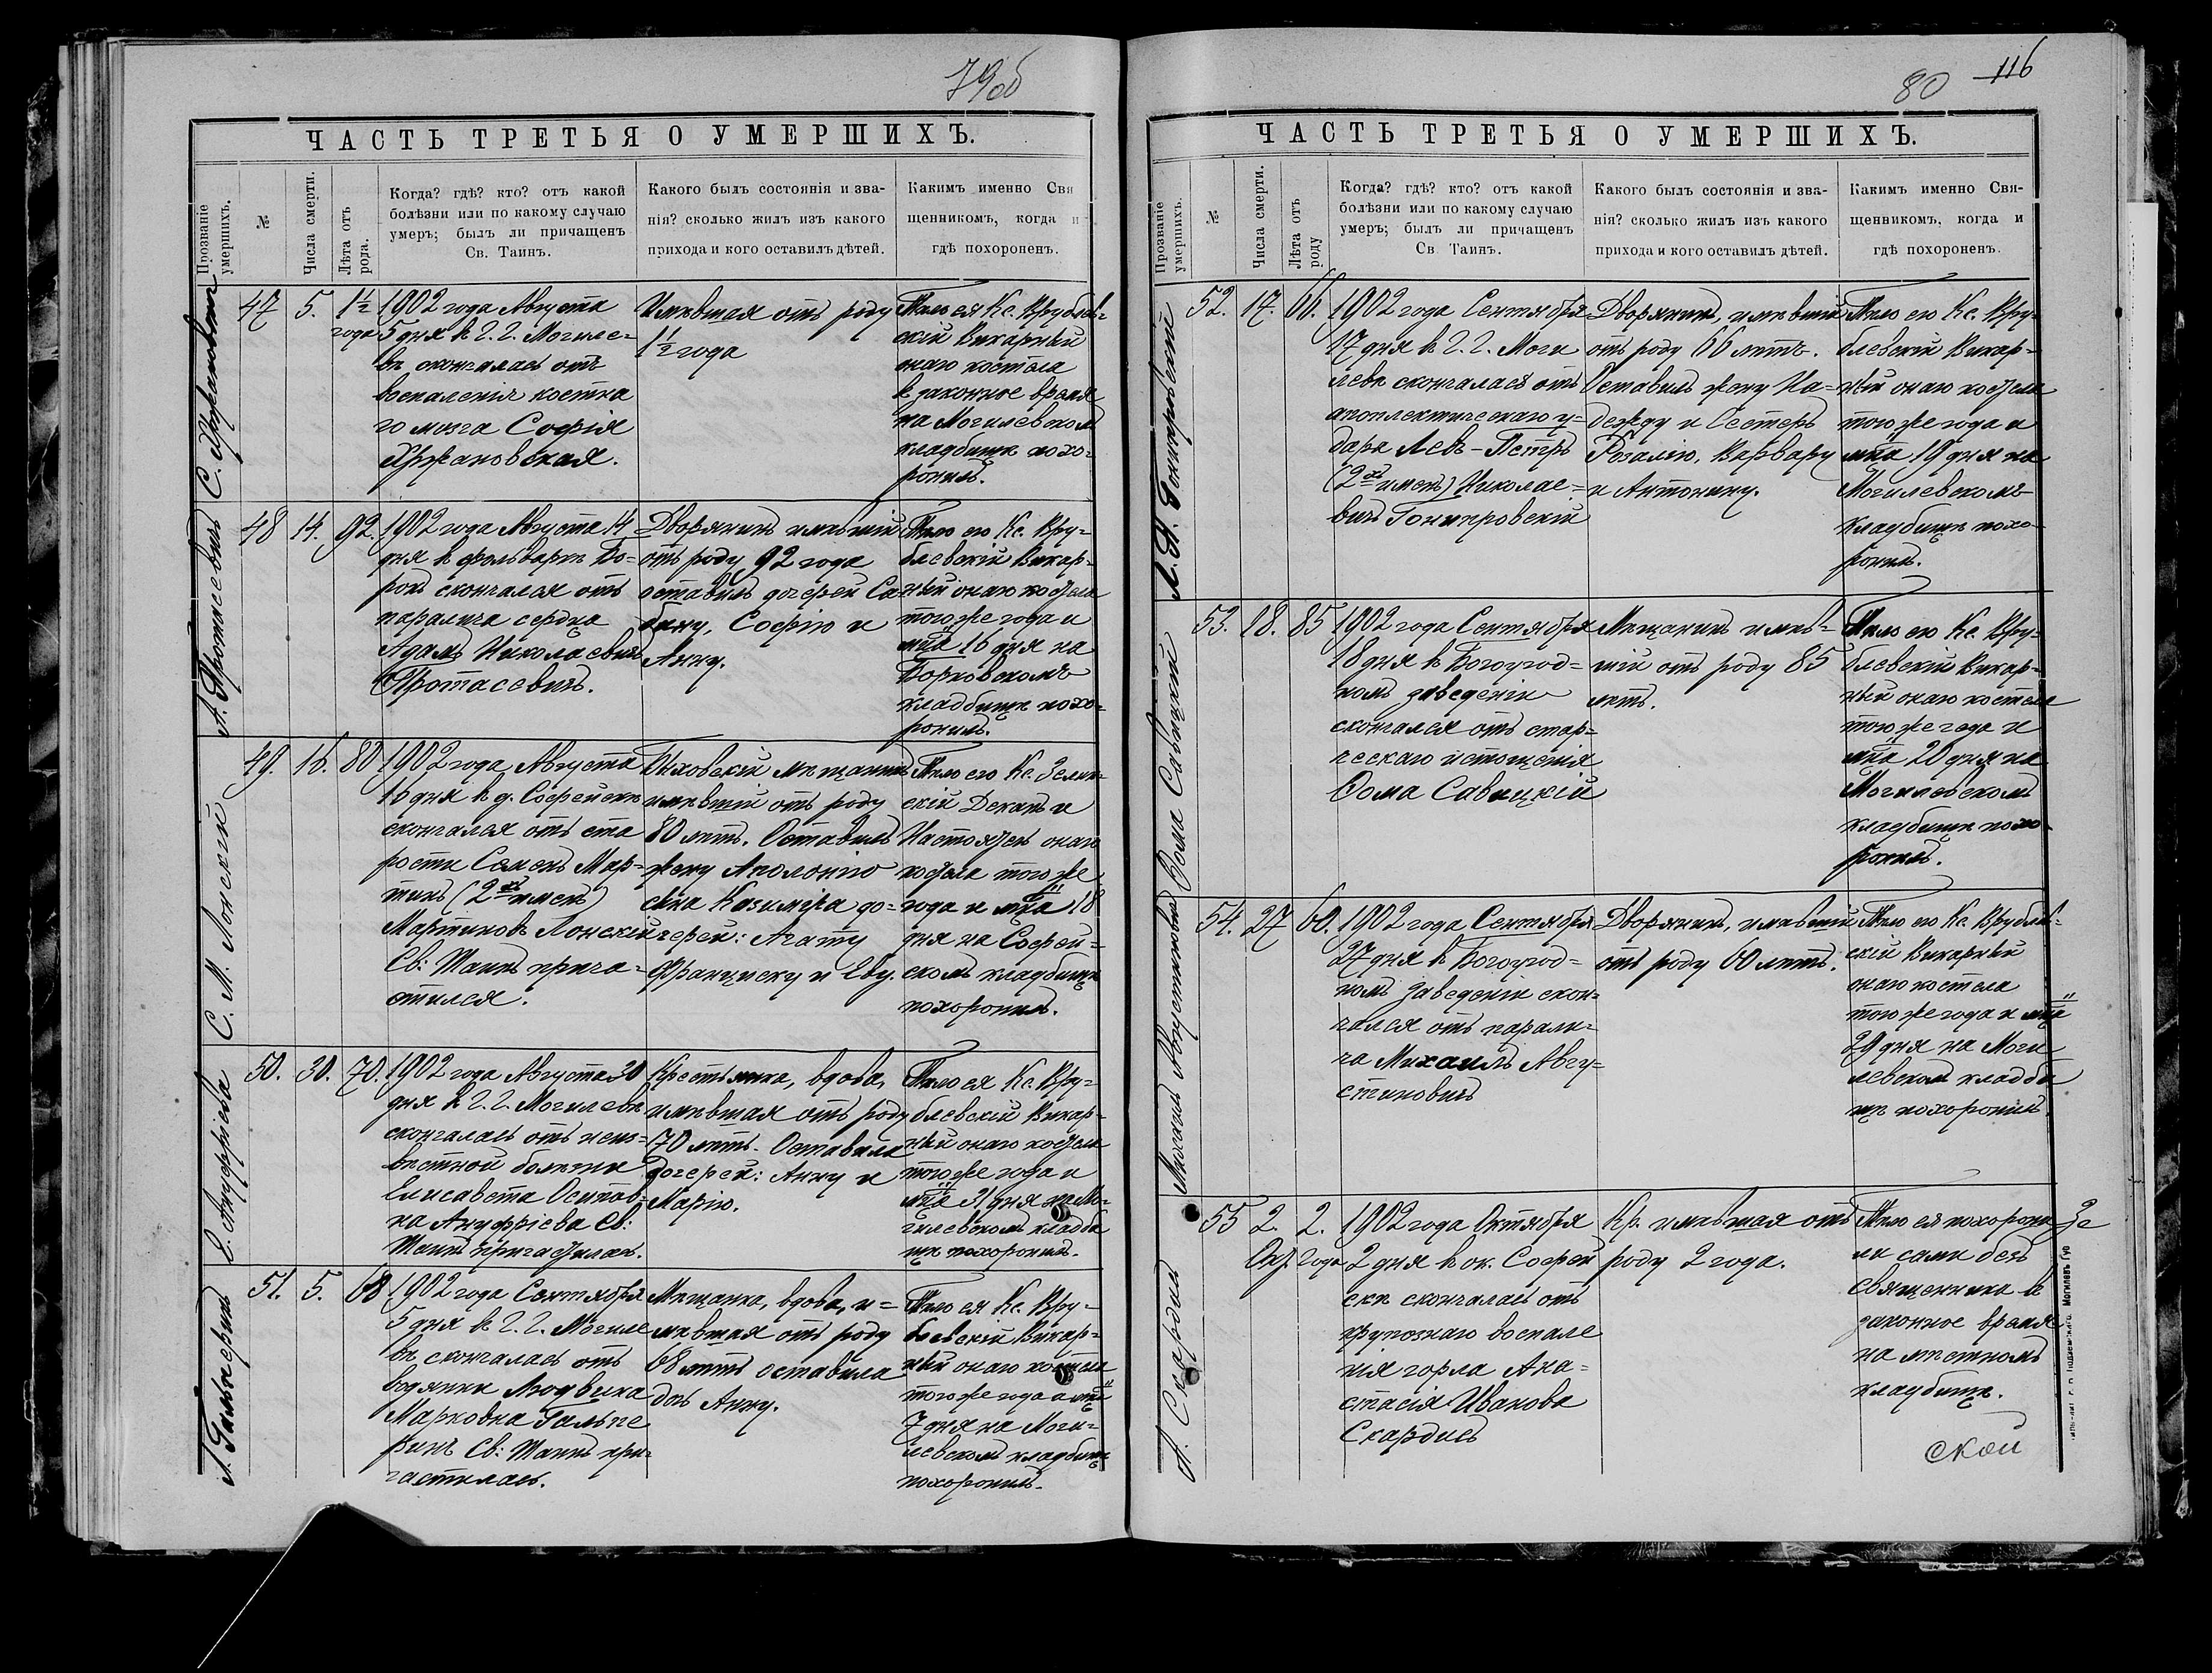 79об
ЧАСТЬ ТРЕТЬЯ О УМЕРШИХЪ.
Прозваніе умершихъ.
№
Числа смерти.
Лѣта отъ рода.
Когда? гдѣ? кто? отъ какой
болѣзни или по какому случаю
умеръ; былъ ли причащенъ
Св. Таинъ.
Какого былъ состоянія и зва-
нія? сколько жилъ изъ какого
прихода и кого оставилъ дѣтей.
Какимъ именно Свя
щенникомъ, когда и
гдѣ похороненъ.
47
5.
1½
года
1902 года Августа
5 дня в г. г. Могиле-
вѣ скончалась отъ
воспаленія костна
го мозга Софія
Хржановская.
Имѣвшая отъ роду
1½ года
Тѣло ея Кс. Врублев-
скій Викарный
онаго костела
в законное время
на Могилевском
кладбищѣ похо-
ронилъ.
А. Протасевичъ
48
14.
92.
1902 года Августа 14
дня в фольваркѣ Бо-
рокъ скончался отъ
паралича сердца
Адамъ Николаевичъ
Протасевичъ.
Дворянинъ имѣвшій
отъ роду 92 года
оставилъ дочерей Са-
бину, Софію и
Анну.
Тѣло его Кс. Вру-
блевскій Викар-
ный онаго костела
того же года и
мца 16 дня на
Борковскомъ
кладбищѣ похо-
ронилъ.
С. М. Лонскій
49.
16.
80
1902 года Августа
16 дня в д. Софейскѣ
скончался отъ ста
рости Семенъ Мар-
тинъ (2хъ именъ)
Мартиновъ Лонскій
Св: Таинъ прича-
стился.
Быховскій мѣщанинъ
имѣвшій отъ роду
80 лѣтъ. Оставилъ
жену Аполонію
сына Казиміра до-
черей: Агату
Францишку и Еву.
Тѣло его Кс. Зелин-
скій Деканъ и
Настоятель онаго
костела того же
года и мца 18
дня на Софей-
скомъ кладбищѣ
похоронилъ.
Е. Ануфріева
50.
30.
70.
1902 года Августа 30
дня в г. г. Могилевѣ
скончалась отъ неиз-
вѣстной болѣзни
Елисавета Осипов-
на Ануфріева Св:
Таинъ причастилась.
Крестьянка, вдова,
имѣвшая отъ роду
70 лѣтъ. Оставила
дочерей: Анну и
Марію.
Тѣло ея Кс. Вру-
блевскій Викар-
ный онаго костела
того же года и
мца 31 дня на Мо-
гилевском кладби
щѣ похоронилъ.
Л. Гальперинъ
51.
5.
68
1902 года Сентября
5 дня в г. г. Могиле
вѣ скончалась отъ
водянки Людвика
Марковна Гальпе
ринъ Св: Таинъ при-
частилась.
Мѣщанка, вдова, и-
мѣвшая отъ роду
68 лѣтъ оставила
дочь Анну.
Тѣло ея Кс. Вру-
блевскій Викар-
ный онаго костела
того же года и мца
7 дня на Моги-
левском кладбищѣ
похоронилъ.
80 116
ЧАСТЬ ТРЕТЬЯ О УМЕРШИХЪ.
Прозваніе умершихъ.
№
Числа смерти.
Лѣта отъ роду
Когда? гдѣ? кто? отъ какой
болѣзни или по какому случаю
умеръ; былъ ли причащенъ
Св Таинъ.
Какого былъ состоянія и зва-
нія? сколько жилъ изъ какого
прихода и кого оставилъ дѣтей.
Какимъ именно Свя-
щенникомъ, когда и
гдѣ похороненъ.
52.
17.
66.
1902 года Сентября
17 дня в г. г. Моги
левѣ скончался отъ
апоплектическаго у-
дара Левъ-Петръ
(2хъ именъ) Николае-
вичъ
Дворянинъ, имѣвшій
отъ роду 66 лѣтъ.
Оставилъ жену На-
дежду и Сестеръ
Розалію, Варвару
и Антонину.
Тѣло его Кс. Вру-
блевскій Викар-
ный онаго костела
того же года и
мца 19 дня на
Могилевскомъ
кладбищѣ похо-
ронилъ.
Ѳома Савицкій
53.
18.
85
1902 года Сентября
18 дня в Богоугод-
номъ заведеніи
скончался отъ стар-
ческаго истощенія
Ѳома Савицкій
Мѣщанинъ имѣв-
шій отъ роду 85
лѣтъ.
Тѣло его Кс. Вру-
блевскій Викар-
ный онаго костела
того же года и
мца 20 дня на
Могилевскомъ
кладбищѣ похо-
ронилъ.
Михаилъ Августиновичъ
54.
27
60.
1902 года Сентября
27 дня в Богоугод-
номъ заведеніи скон-
чался отъ парали-
ча Михаилъ Авгу-
стиновичъ
Дворянинъ, имѣвшій
отъ роду 60 лѣтъ.
Тѣло его Кс. Врублев-
скій Викарный
онаго костела
того же года и мца
29 дня на Моги
левском кладби
щѣ похоронилъ.
А. Скардись
55
2.
Окт.
2.
года
1902 года Октября
2 дня в ок. Софей
скѣ скончалась отъ
крупознаго воспале
нія горла Ана-
стасія Иванова
Скардись
Кр. имѣвшая отъ
роду 2 года.
Тѣло ея похорони
ли сами безъ
священника в
законное время
на мѣстномъ
кладбищѣ.
Зе
ской